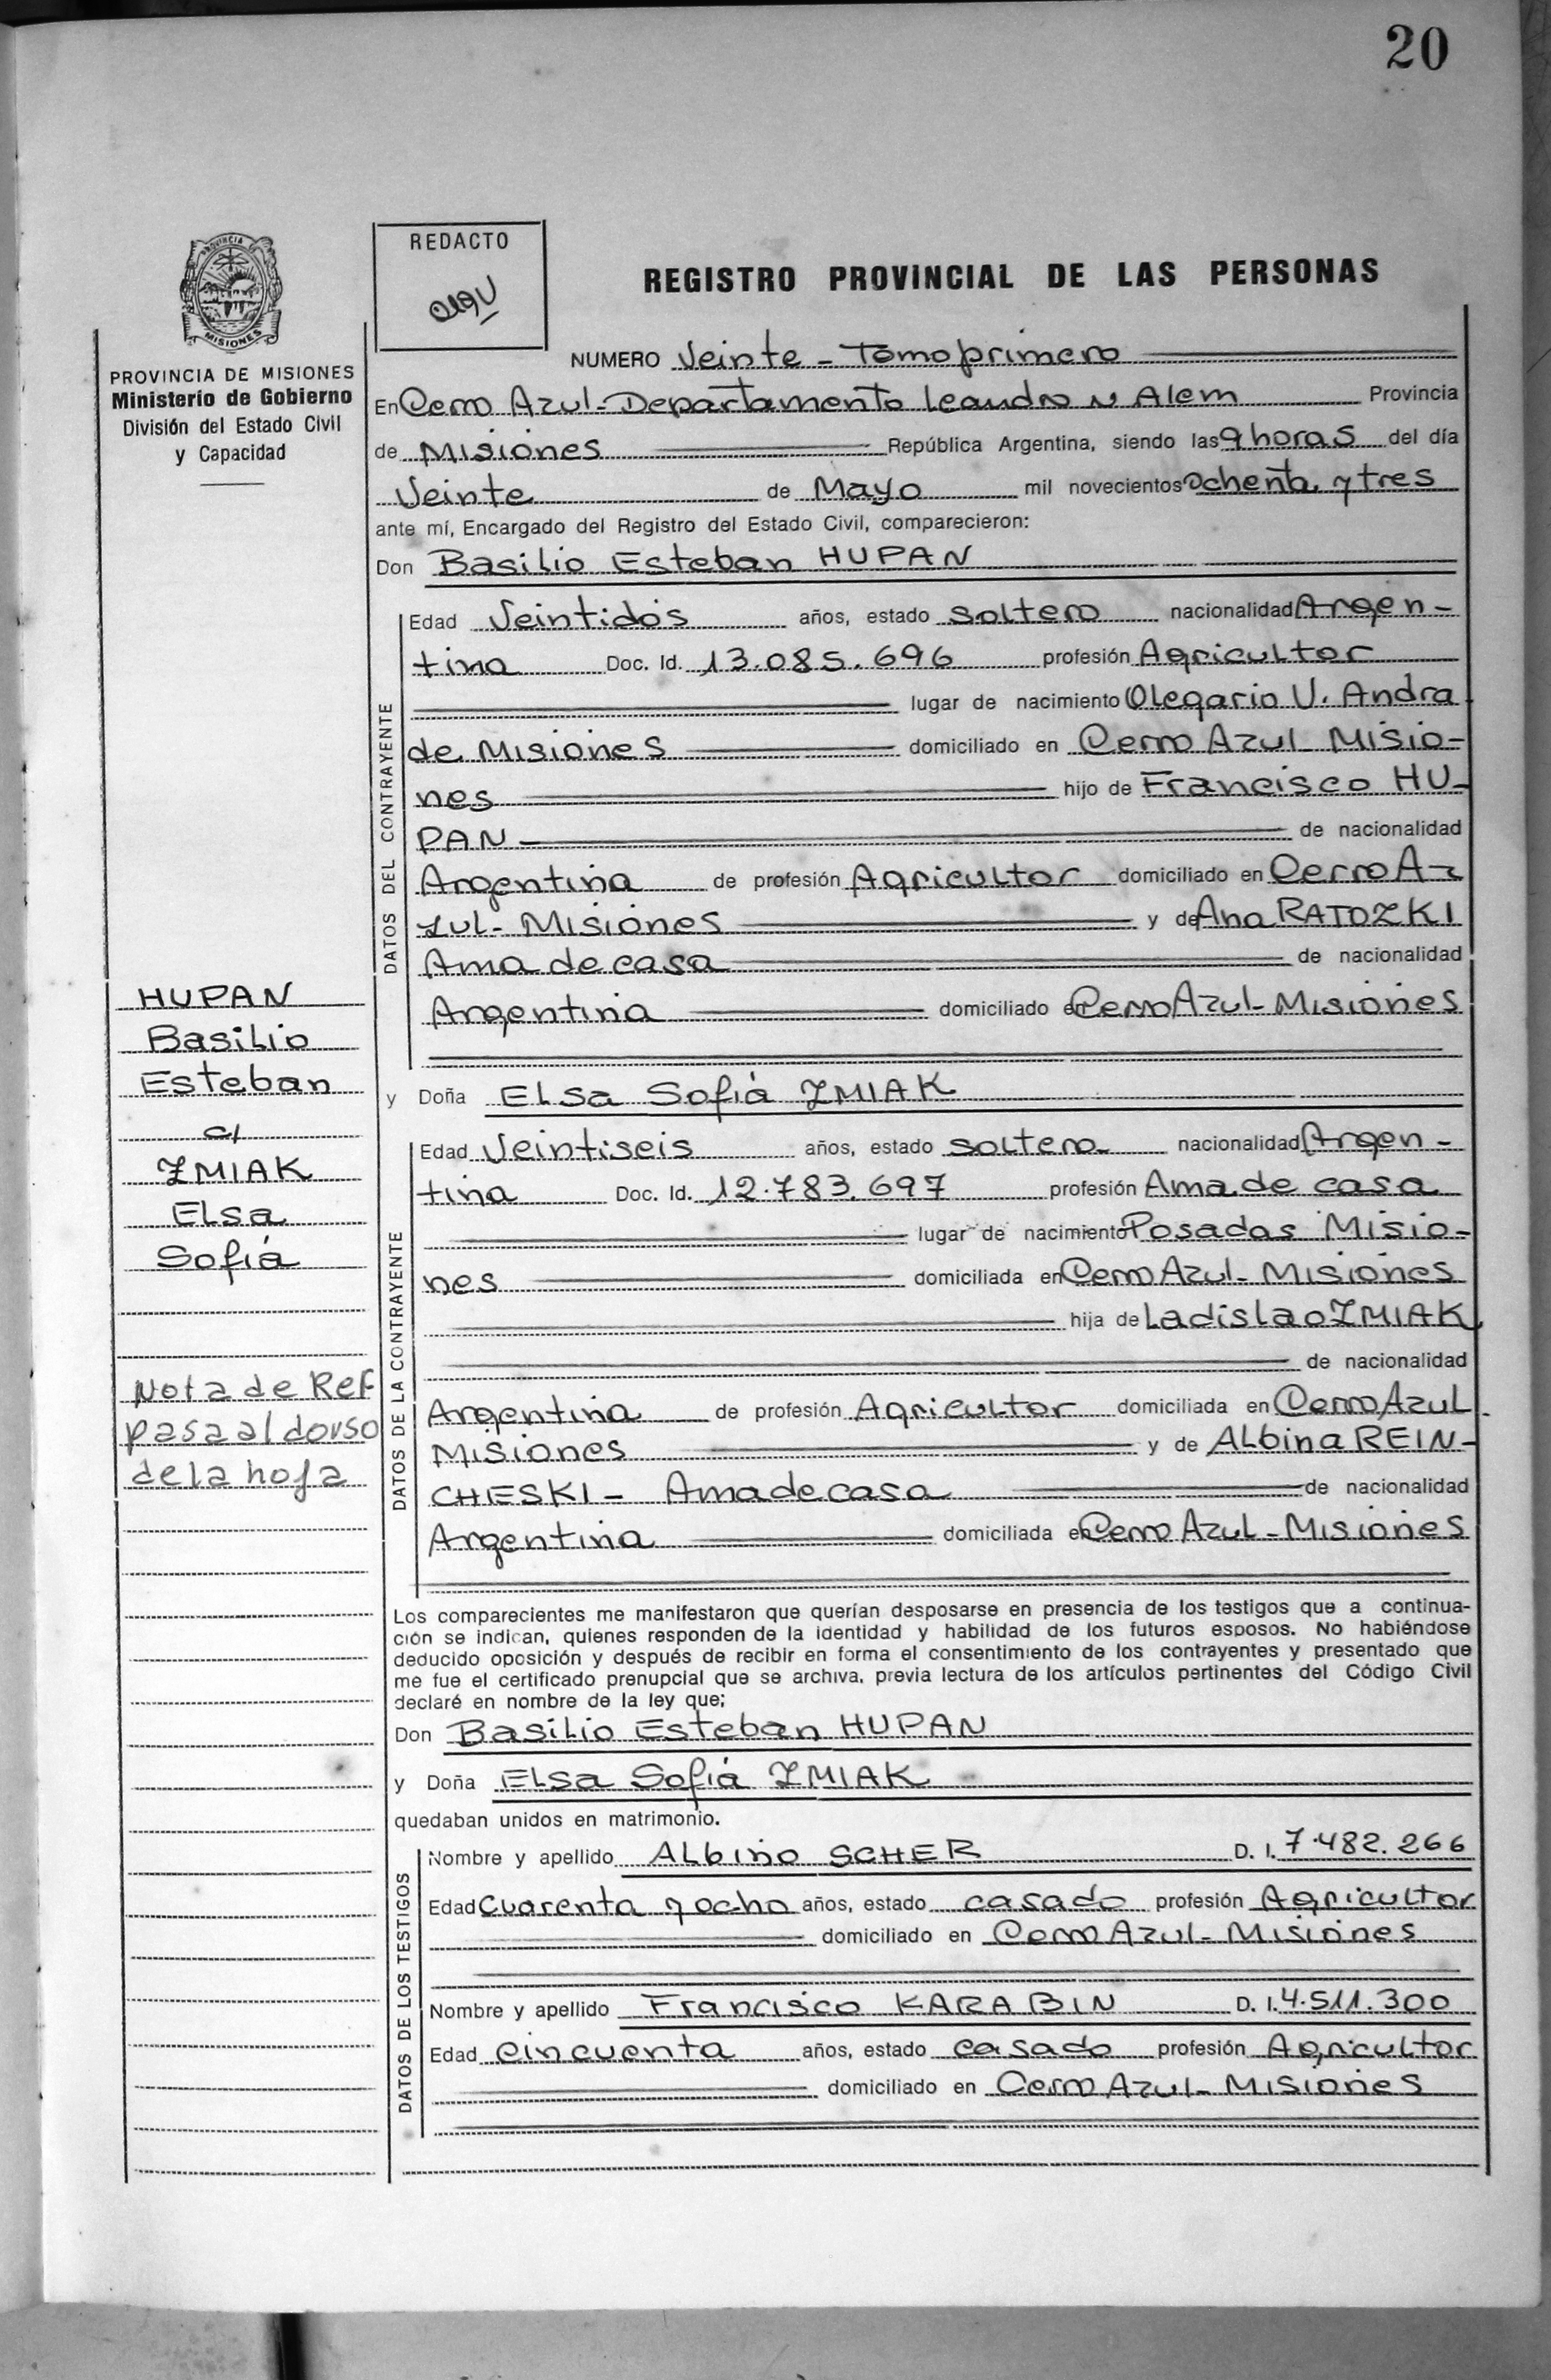 20
PROVINCIA DE
MISIONES
PROVINCIA DE MISIONES
Ministerio de Gobierno
División del Estado Civil
y Capacidad
HUPAN
Basilio
Esteban
c/
ZMIAK
Elsa
Sofía
Nota de Ref
pasa al dorso
de la hoja
REDACTO
REGISTRO PROVINCIAL DE LAS PERSONAS
NUMERO Veinte - Tomo primero
En Cerro Azul - Departamento Leandro N Alem Provincia
de Misiones República Argentina, siendo las 9 horas del día
Veinte de Mayo mil novecientos ochenta y tres
ante mí, Encargado del Registro del Estado Civil, comparecieron:
Don Basilio Esteban HUPAN
DATOS DEL CONTRAYENTE
Edad Veintidós años, estado soltero nacionalidad Argen-
tina Doc. Id. 13.085.696 profesión Agricultor
lugar de nacimiento Olegario V. Andra
de Misiones domiciliado en Cerro Azul Misio-
nes hijo de Francisco HU-
PAN de nacionalidad
Argentina de profesión Agricultor domiciliado en Cerro A-
zul - Misiones y de Ana RATOZKI
Ama de casa de nacionalidad
Argentina domiciliado en Cerro Azul - Misiones
y Doña Elsa Sofía ZMIAK
DATOS DE LA CONTRAYENTE
Edad Veintiseis años, estado soltera nacionalidad Argen-
tina Doc. Id. 12.783.697 profesión Ama de casa
lugar de nacimiento Posadas Misio-
nes domiciliada en Cerro Azul - Misiones
hija de Ladislao ZMIAK
de nacionalidad
Argentina de profesión Agricultor domiciliada en Cerro Azul
Misiones y de Albina REIN-
CHESKI - Ama de casa de nacionalidad
Argentina domiciliada en Cerro Azul - Misiones
Los comparecientes me manifestaron que querían desposarse en presencia de los testigos que a continua-
ción se indican, quienes responden de la identidad y habilidad de los futuros esposos. No habiéndose
deducido oposición y después de recibir en forma el consentimiento de los contrayentes y presentado que
me fue el certificado prenupcial que se archiva, previa lectura de los artículos pertinentes del Código Civil
declaré en nombre de la ley que;
Don Basilio Esteban HUPAN
y Doña Elsa Sofía ZMIAK
quedaban unidos en matrimonio.
DATOS DE LOS TESTIGOS
Nombre y apellido Albino SCHER D. I. 7.482.266
Edad Cuarenta y ocho años, estado casado profesión Agricultor
domiciliado en Cerro Azul - Misiones
Nombre y apellido Francisco KARABIN D. I. 4.511.300
Edad Cincuenta años, estado casado profesión Agricultor
domiciliado en Cerro Azul - Misiones